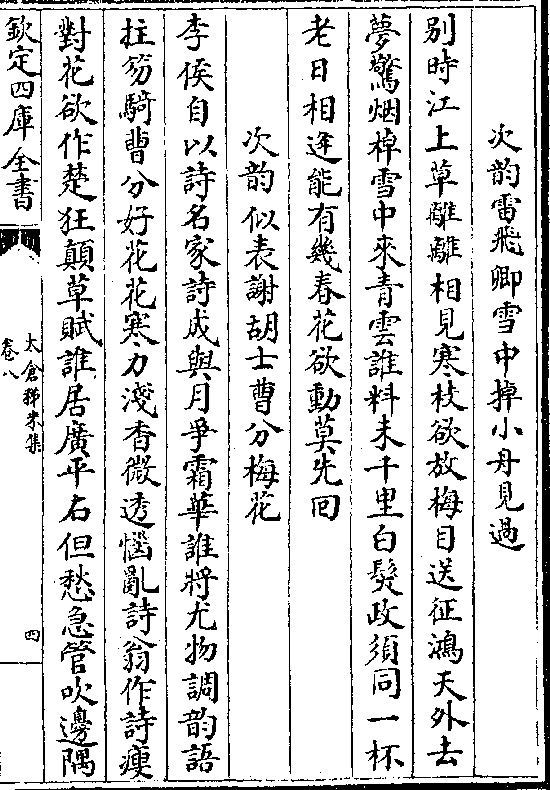 次韵雷飛卿雪中掉小舟見過
别時江上草離離相見寒枝欲放梅目送征鴻天外去
夢驚烟棹雪中來青雲誰料未千里白髮政須同一杯
老日相逢能有幾春花欲動莫先回
次韵似表謝胡士曹分梅花
李侯自以詩名家詩成與月爭霜華誰將尤物調韵語
拄笏騎曹分好花花寒力淺香微透惱亂詩翁作詩瘦
對花欲作楚狂顛草賦誰居廣平右但愁急管吹邊隅
欽定四庫全書
太倉稊米集
卷八
四